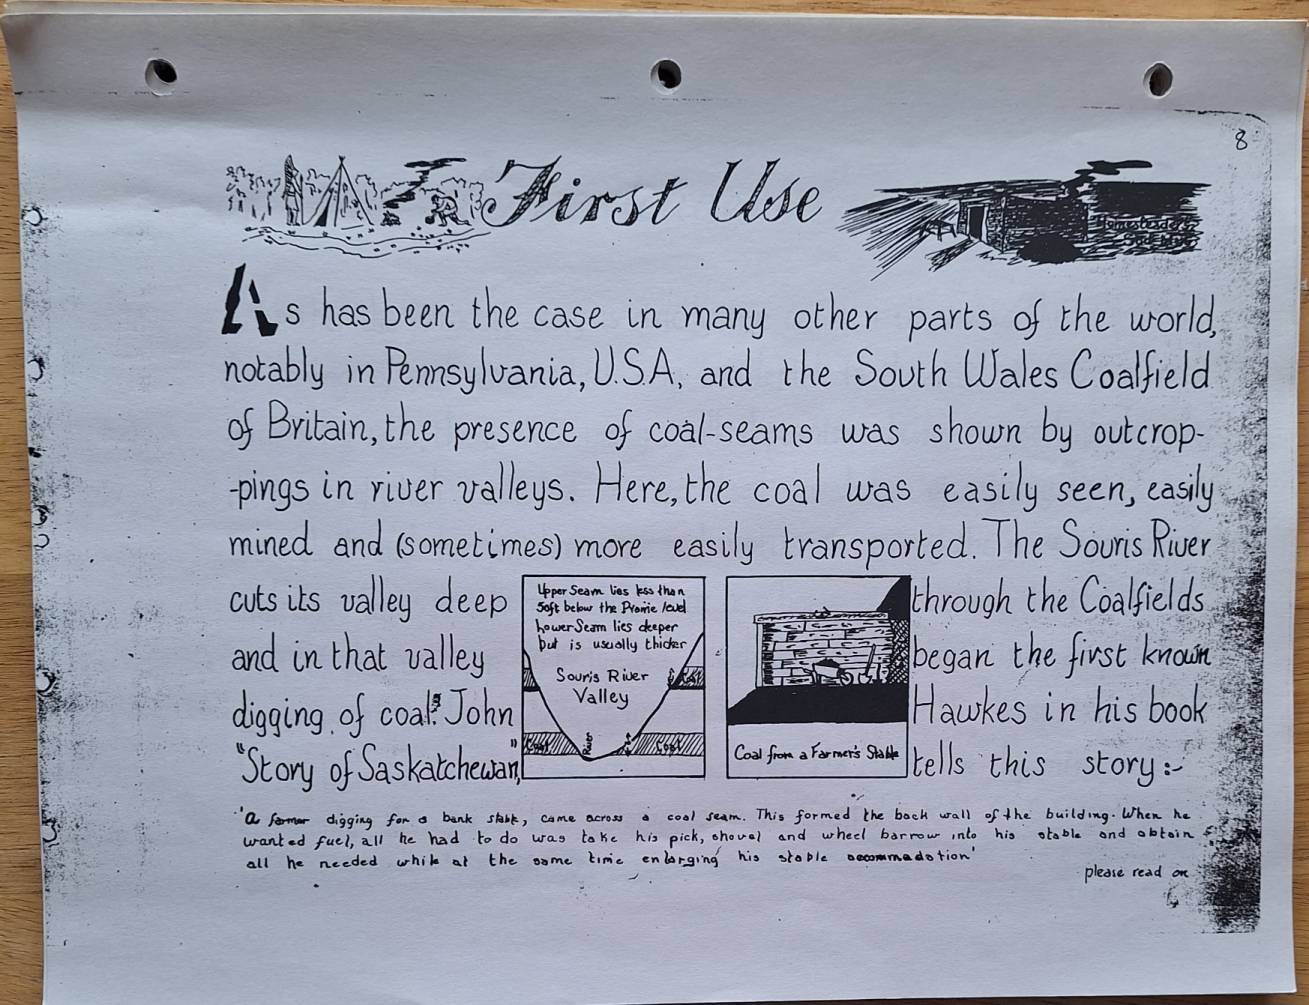 8
First Use
Homesteader's
As has been the case in many other parts of the world,
notably in Pennsylvania, U.S.A, and the South Wales Coalfield
of Britain, the presence of coal-seams was shown by outcrop-
-pings in river valleys. Here, the coal was easily seen, easily
mined and (sometimes) more easily transported. The Souris River
cuts its valley deep through the Coalfields
and in that valley began the first known
digging of coal. John Hawkes in his book
"Story of Saskatchewan," tells this story:-
Upper Seam lies less than
50ft below the Prairie level
Lower Seam lies deeper
but is usually thicker
Souris River
Valley
Coal
Coal River Coal
Coal from a Farmer's Stable
'A farmer digging for a bank stable, came across a coal seam. This formed the back wall of the building. When he
wanted fuel, all he had to do was take his pick, shovel and wheel barrow into his stable and obtain
all he needed while at the same time enlarging his stable accommodation'
please read on